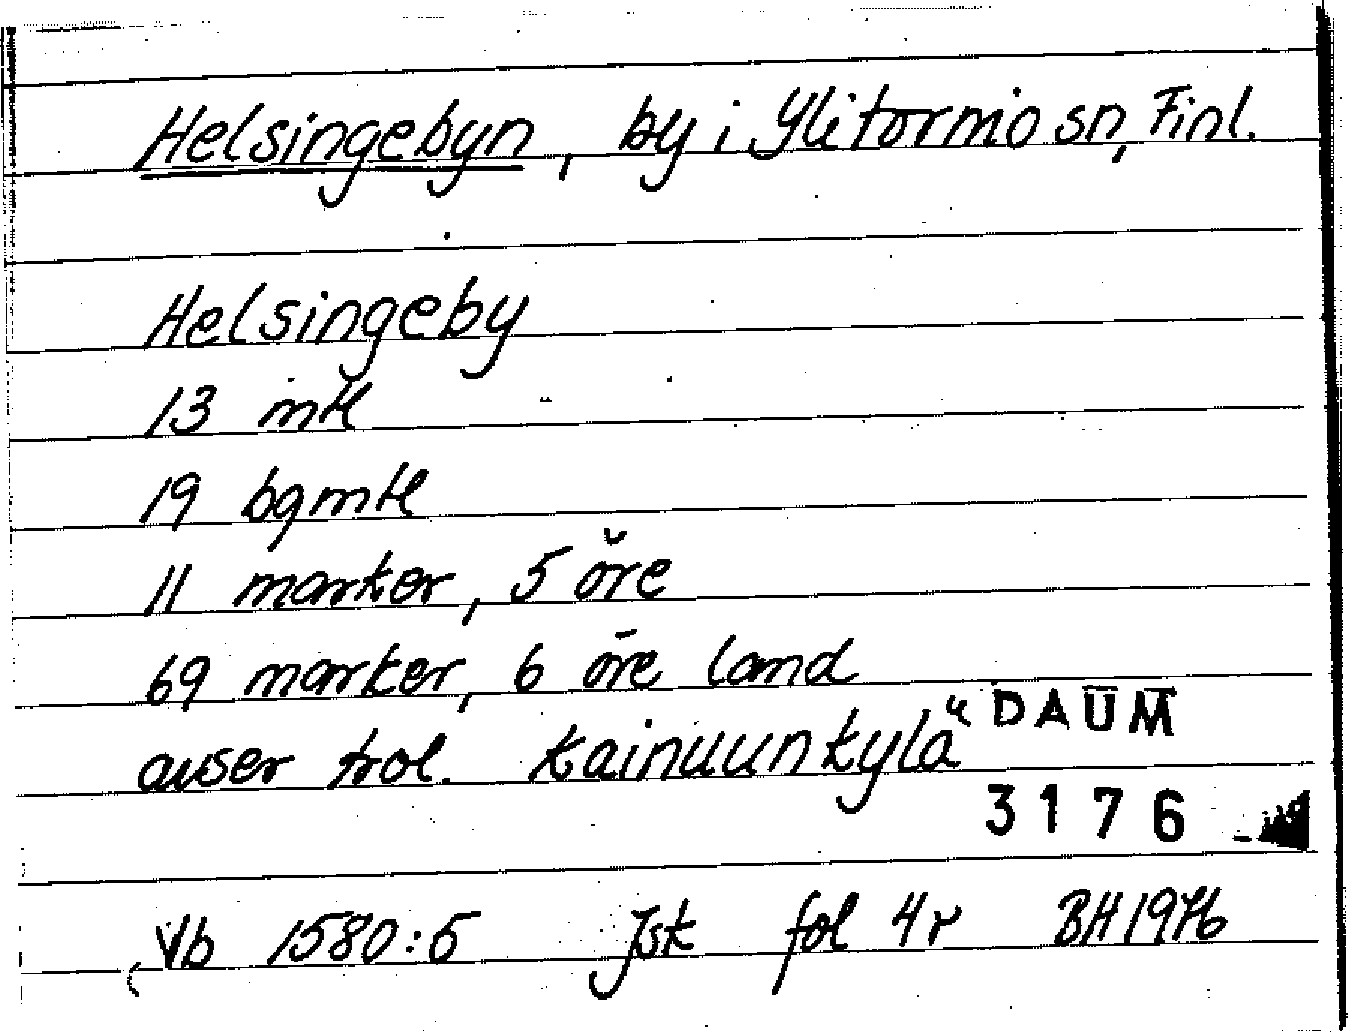 Helsingebyn, by i Ylitornio sn, Finl.
Helsingeby
13 mtl
19 bgmtl
11 marker, 5 öre
69 marker, 6 öre land
avser trol. Kainuunkylä
DAUM
3176
Vb 1580:5 Jsk fol 4r BH 1976